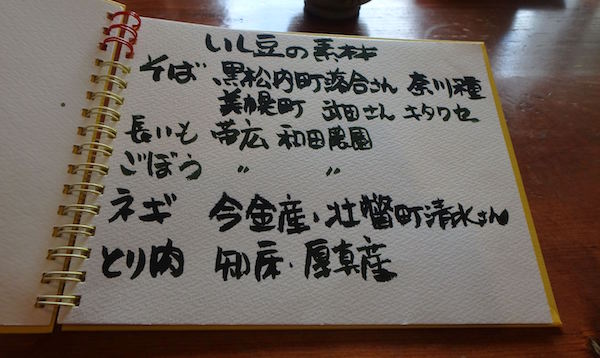 いし豆の素材
そば 黒松内町落合さん 奈川種
美幌町 武田さん キタワセ
長いも 帯広 和田農園
ごぼう 〃 〃
ネギ 今金産・壮瞥町清水さん
とり肉 知床・厚真産